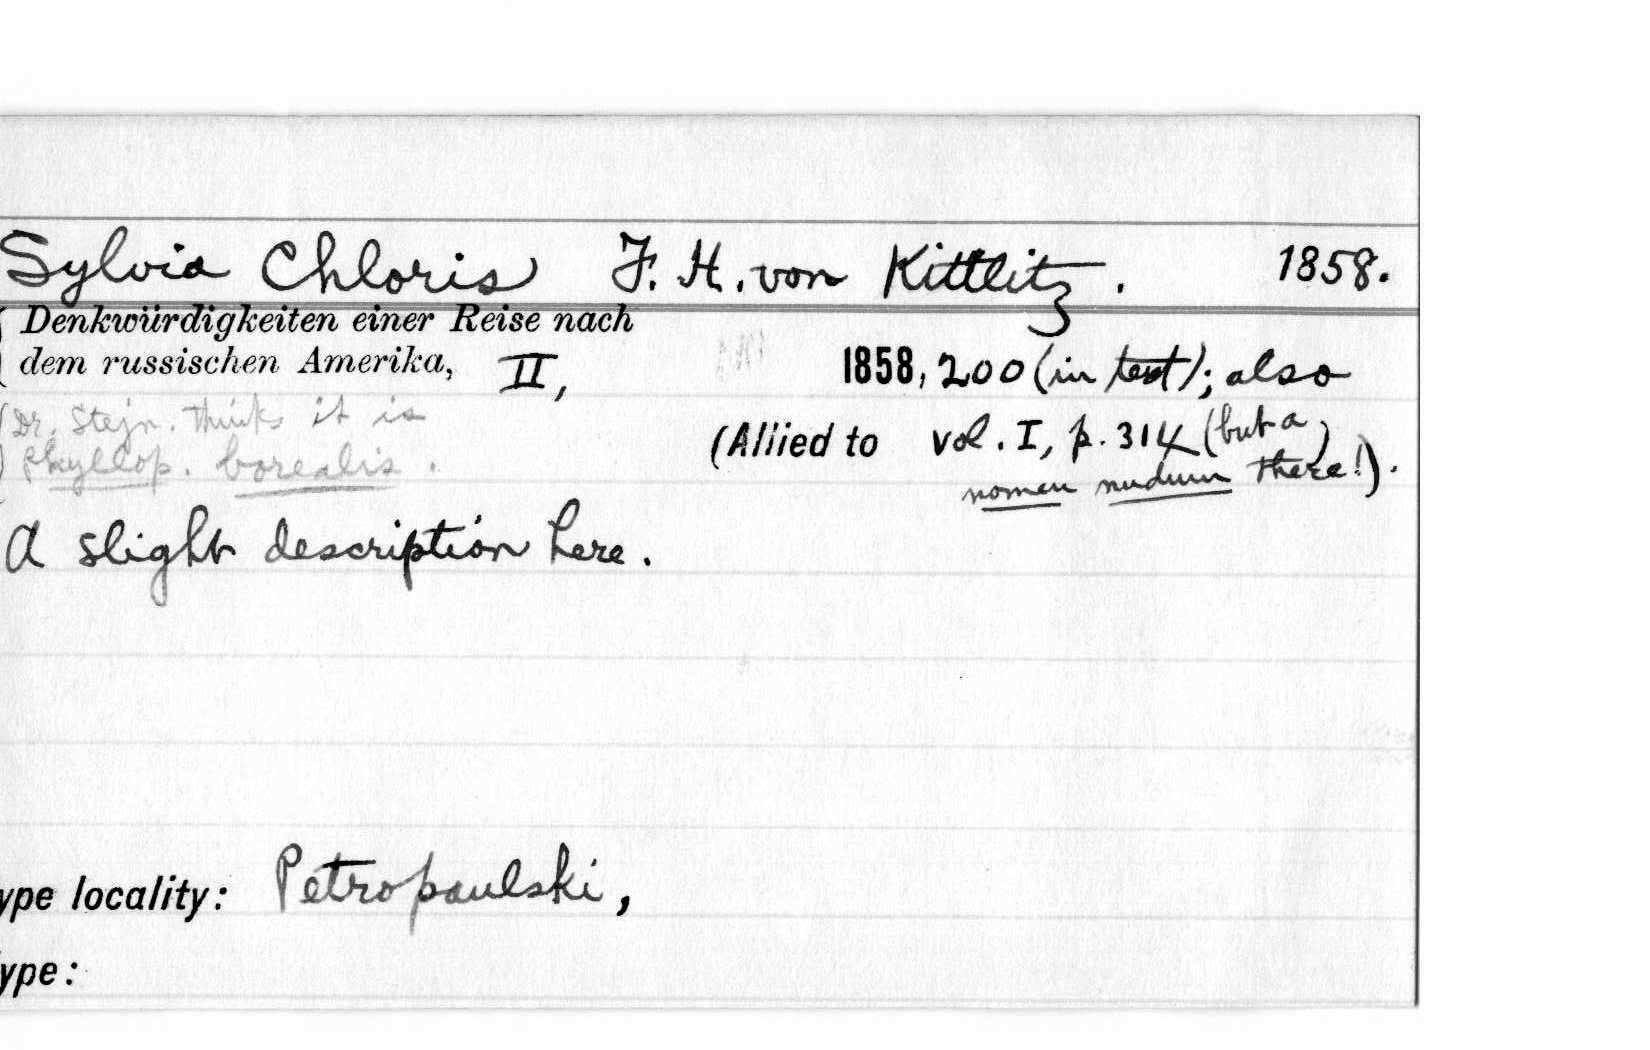 Sylvia Chloris F. H. von Kittlitz. 1858.
Denkwürdigkeiten einer Reise nach
dem russischen Amerika, II, 1858, 200 (in text); also
(Dr. Stejn. thinks it is
Phyllop. borealis.
(Allied to vol. I, p. 314 (but a
nomen nudum there!)).
A slight description here.
ype locality: Petropaulski,
ype: